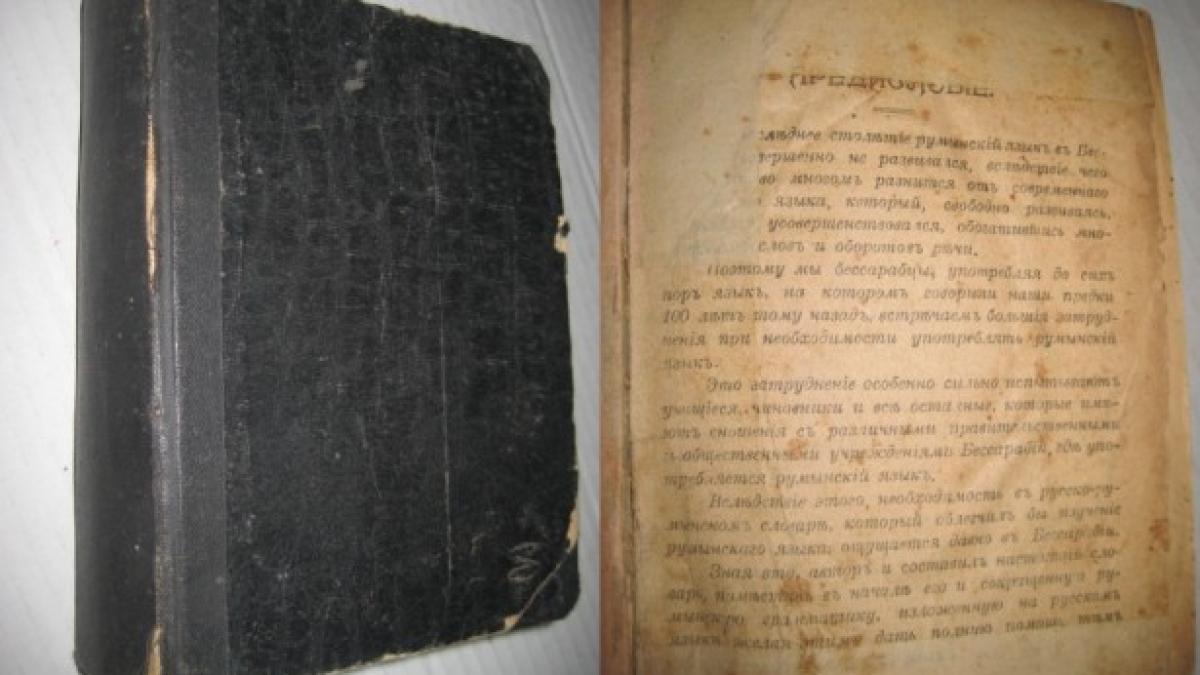 ПРЕДИСЛОВІЕ.
столѣтіе румынскій языкъ въ Бес-
не развивался, вслѣдствіе чего
во многомъ разнится отъ современнаго
языка, который, свободно развиваясь,
усовершенствовался, обогатившись мно-
словъ и оборотовъ рѣчи.
Поэтому мы бессарабцы, употребляя до сихъ
поръ языкъ, на которомъ говорили наши предки
100 лѣтъ тому назадъ, встрѣчаемъ большія затруд-
ненія при необходимости употреблять румынскій
языкъ.
Это затрудненіе особенно сильно испытываютъ
учащіеся, чиновники и всѣ остальные, которые имѣ-
ютъ сношенія съ различными правительственными
и общественными учрежденіями Бессарабіи, гдѣ упо-
требляется румынскій языкъ.
Вслѣдствіе этого, необходимость въ русско-ру-
мынскомъ словарѣ, который облегчилъ бы изученіе
румынскаго языка, ощущается давно въ Бессарабіи.
Зная это, авторъ и составилъ настоящій сло-
варь, помѣстивъ въ началѣ его и сокращенную ру-
мынскую грамматику, изложенную на русскомъ
языкѣ желая этимъ дать полную помощь тѣмъ